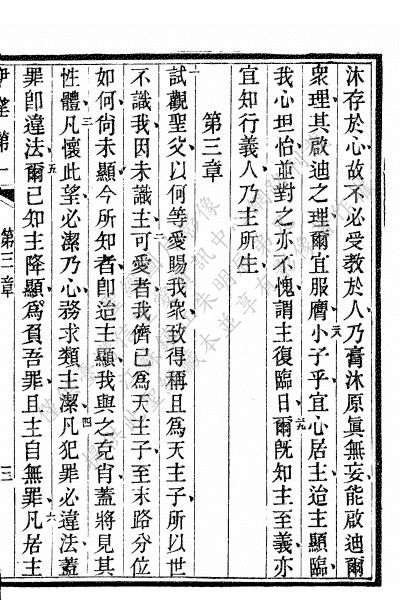 沐存於心故不必受教於人乃膏沐原眞無妄能啟迪爾
衆理其啟迪之理爾宜服膺小子乎宜心居主迨主顯臨
二八
我心坦怡並對之亦不愧謂主復臨日爾既知主至義亦
二九
宜知行義人乃主所生
第三章
試觀聖父以何等愛賜我衆致得稱且為天主子所以世
一
不識我因未識主可愛者我儕已為天主子至末路分位
二
如何尙未顯今所知者卽迨主顯我與之克肖蓋將見其
性體凡懷此望必潔乃心務求類主潔凡犯罪必違法蓋
三
四
罪卽違法爾已知主降顯為負吾罪且主自無罪凡居主
五
六
第三章
三